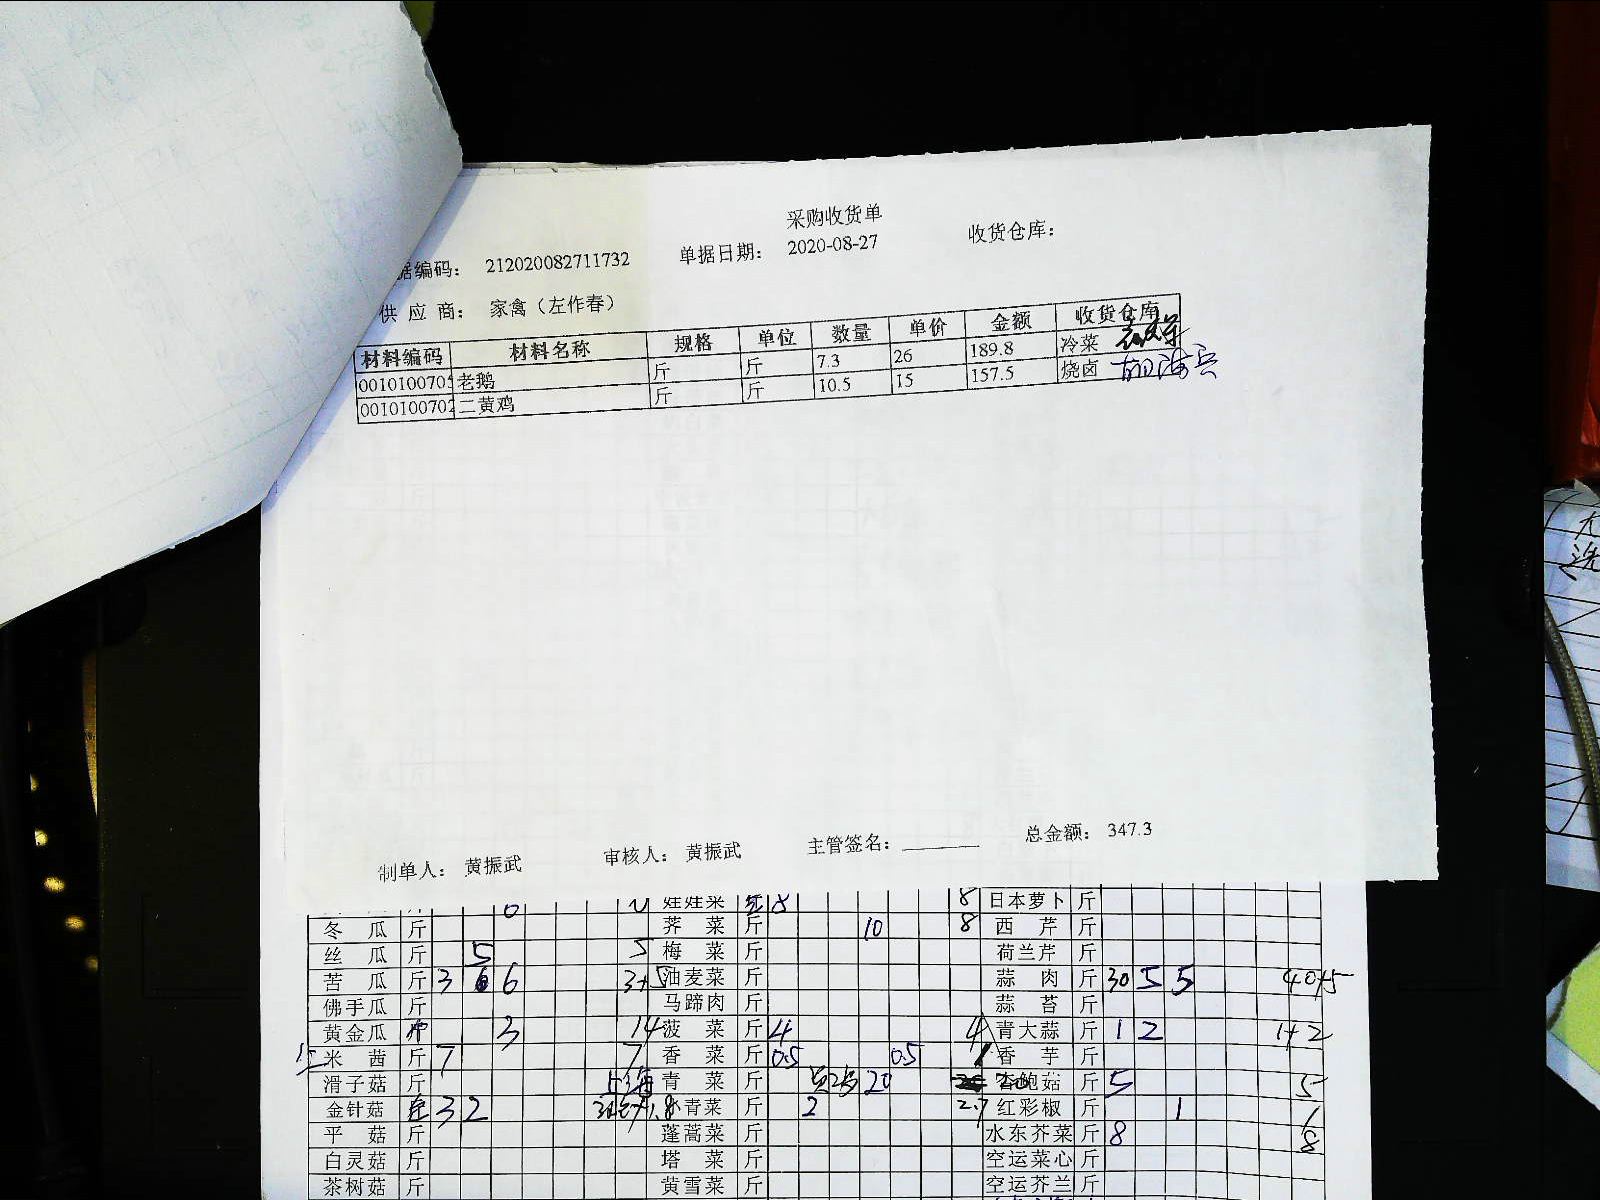 采购收货单
据编码： 212020082711732 单据日期： 2020-08-27 收货仓库：
供 应 商： 家禽（左作春）
材料编码 材料名称 规格 单位 数量 单价 金额 收货仓库
0010100705 老鹅 斤 斤 7.3 26 189.8 冷菜
0010100702 二黄鸡 斤 斤 10.5 15 157.5 烧卤
制单人： 黄振武 审核人： 黄振武 主管签名： 总金额： 347.3
娃娃菜 8 8 日本萝卜 斤
冬 瓜 斤 荠 菜 斤 10 8 西 芹 斤
丝 瓜 斤 5 5 梅 菜 斤 荷兰芹 斤
苦 瓜 斤 3 6 6 3+5 油麦菜 斤 蒜 肉 斤 30 5 5 40+5
佛手瓜 斤 马蹄肉 斤 蒜 苔 斤
黄金瓜 3 14 菠 菜 斤 4 4 青大蒜 斤 1 2 1+2
米 茜 斤 7 7 香 菜 斤 0.5 0.5 香 芋 斤
滑子菇 斤 上海 青 菜 斤 20 杏鲍菇 斤 5 5
金针菇 3 2 小青菜 斤 2 2.7 红彩椒 斤 1 1
平 菇 斤 蓬蒿菜 斤 水东芥菜 斤 8 8
白灵菇 斤 塔 菜 斤 空运菜心 斤
茶树菇 斤 黄雪菜 斤 空运芥兰 斤